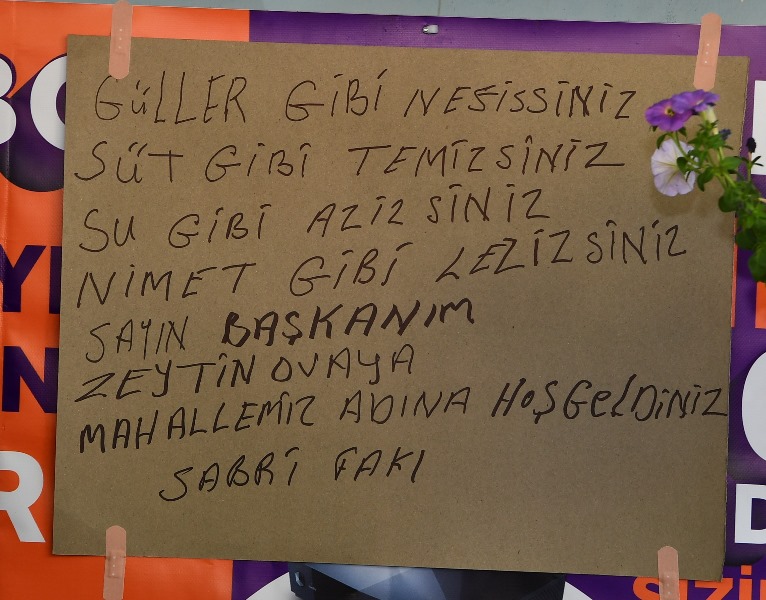 GÜLLER GİBİ NEFİSSİNİZ
SÜT GİBİ TEMİZSİNİZ
SU GİBİ AZİZ SİNİZ
NİMET GİBİ LEZİZSİNİZ
SAYIN BAŞKANIM
ZEYTİN OVAYA
MAHALLEMİZ ADINA HOŞGeLDİNİZ
SABRİ FAKI